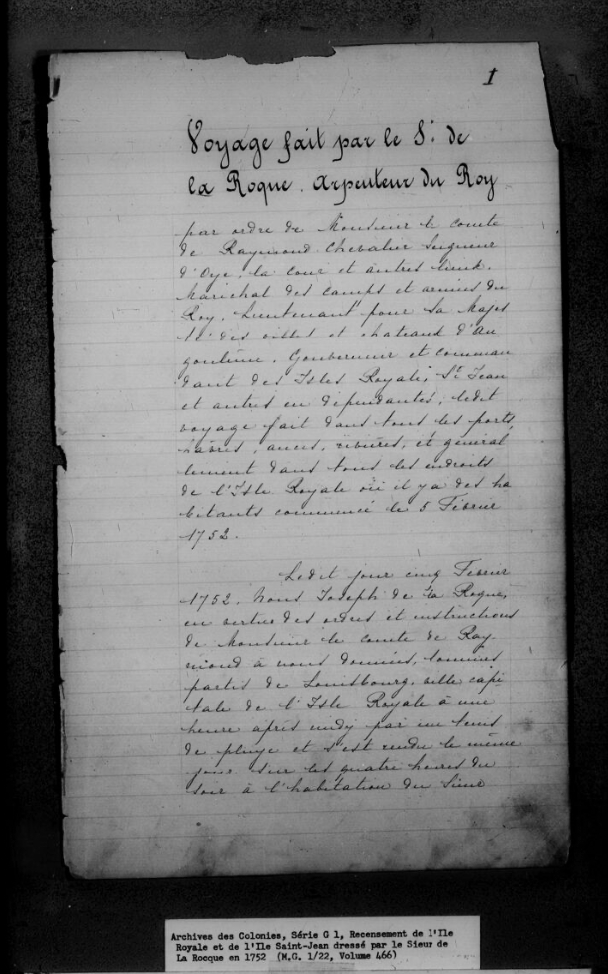 1
Voyage fait par le S.r de
la Roque. Arpenteur du Roy
par ordre de Monsieur le comte
de Raymond Chevalier Seigneur
d'Oye, la Cour et autres lieux.
Maréchal des camps et armées du
Roy, Lieutenant pour Sa Majes
té des villes et chateaux d'An
goulême. Gouverneur et comman
dant des Isles Royale, St Jean
et autres en dépendantes, ledit
voyage fait dans tous les ports,
hâvres, ances, rivières, et général
lement dans tous les endroits
de l'Isle Royale où il y a des ha
bitants commencé le 5 Février
1752.
Ledit jour cinq Février
1752. Nous Joseph de la Roque,
en vertu des ordres et instructions
de Monsieur le comte de Ray
mond à nous données, sommes
partis de Louisbourg, ville capi
tale de l'Isle Royale à une
heure après midy par un tems
de pluye et s'est rendu le même
jour sur les quatre heures du
soir à l'habitation du Sieur
Archives des Colonies, Série G 1, Recensement de l'Ile
Royale et de l'Ile Saint-Jean dressé par le Sieur de
La Rocque en 1752 (M.G. 1/22, Volume 466)